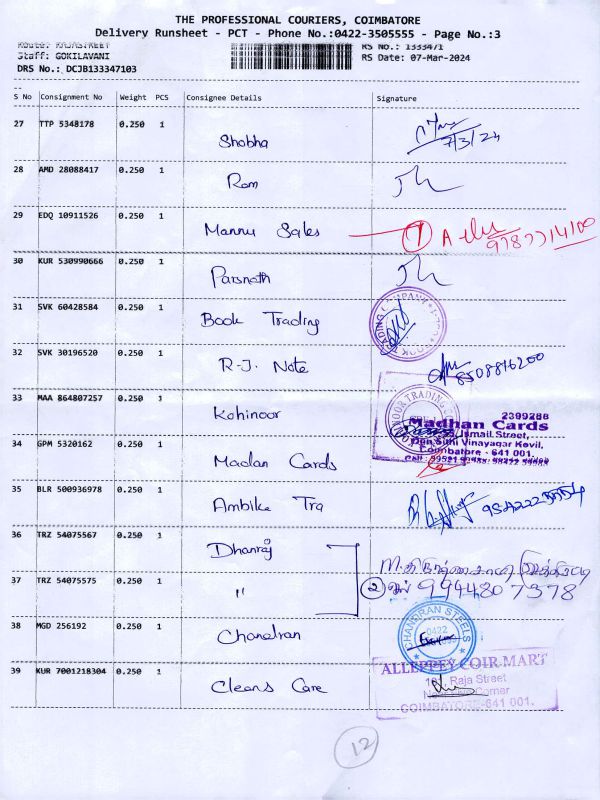 THE PROFESSIONAL COURIERS, COIMBATORE
Delivery Runsheet - PCT - Phone No.:0422-3505555 - Page No.:3
Route: RAJASTREET RS No.: 1333471
Staff: GOKILAVANI RS Date: 07-Mar-2024
DRS No.: DCJB133347103
S No Consignment No Weight PCS Consignee Details Signature
27 TTP 5348178 0.250 1 Shobha 7/3/24
28 AMD 28088417 0.250 1 Ram
29 EDQ 10911526 0.250 1 Mannu Sales 1
30 KUR 530990666 0.250 1 Parsnath
31 SVK 60428584 0.250 1 Book Trading
32 SVK 30196520 0.250 1 R.J. Note 8508816200
33 MAA 864807257 0.250 1 Kohinoor
2399286
Madhan Cards
Ismail Street,
Vinayagar Kovil,
Coimbatore - 641 001.
34 GPM 5320162 0.250 1 Madan Cards
35 BLR 500936978 0.250 1 Ambika Tra
36 TRZ 54075567 0.250 1 Dhanraj
37 TRZ 54075575 0.250 1 " 2 9944807378
38 MGD 256192 0.250 1 Chandran
CHANDRAN STEELS
0422
39 KUR 7001218304 0.250 1 Cleans Care
ALLEPPEY COIR MART
Raja Street
Corner
COIMBATORE-641 001.
12